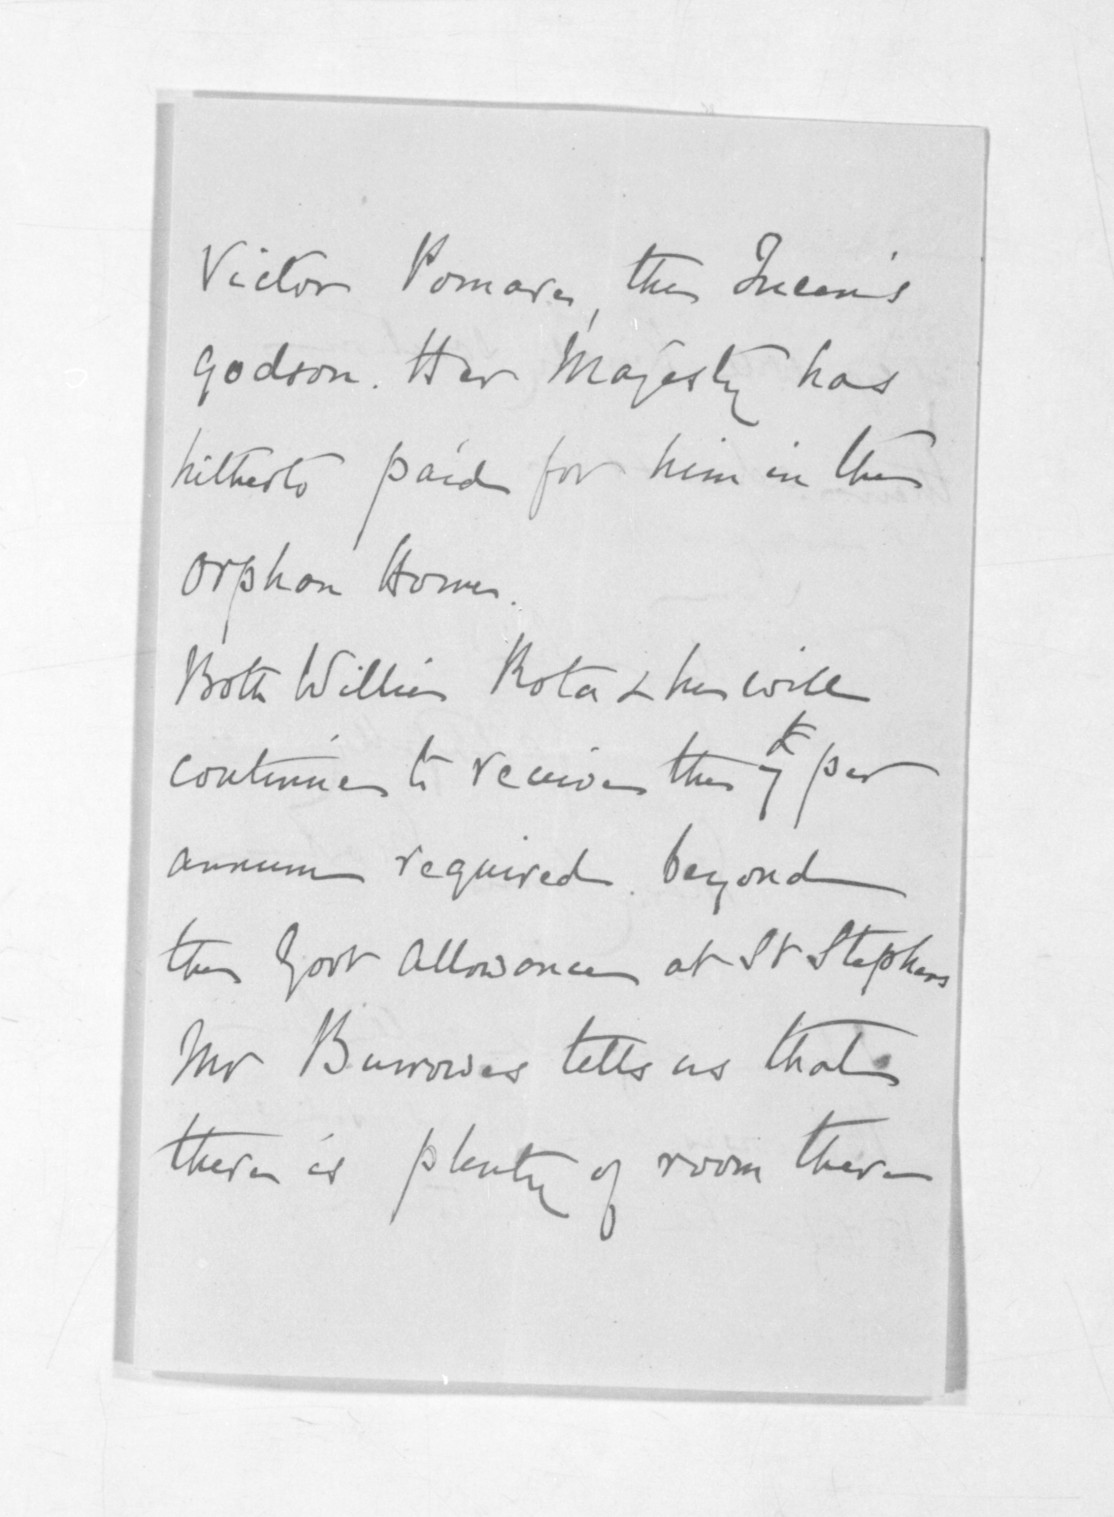 Victor Pomare, the Queen's
godson. Her Majesty has
hitherto paid for him in the
orphan Home.
Both Willie Kota & he will
continue to receive the £7 per
annum required beyond
the Govt allowance at St Stephens
Mr Burrows tells us that
there is plenty of room there